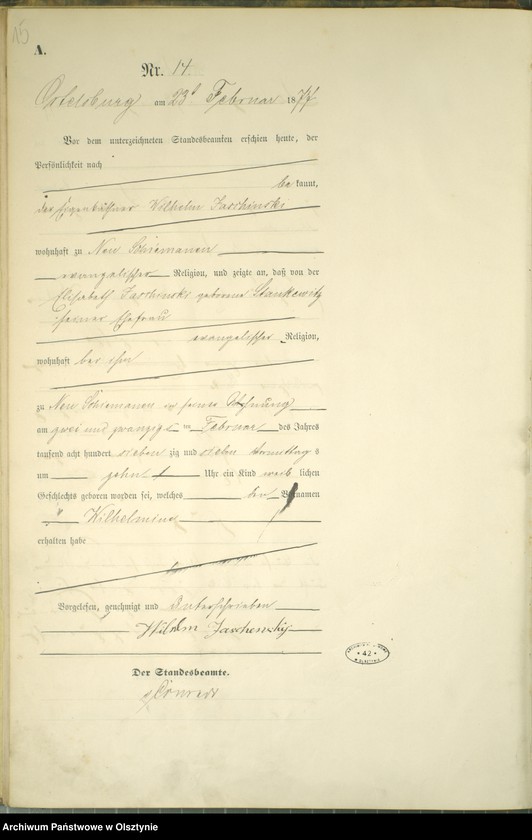 15
A.
Nr. 14.
Ortelsburg am 23t Februar 1877
Vor dem unterzeichneten Standesbeamten erschien heute, der
Persönlichkeit nach
be kannt,
der Eigenkäthner Wilhelm Jaschinski
wohnhaft zu Neu Schiemanen
evangelischer Religion, und zeigte an, daß von der
Elisabeth Jaschinski geborene Stankewitz
seiner Ehefrau
evangelischer Religion,
wohnhaft bei ihm
zu Neu Schiemanen in seiner Wohnung
am zwei und zwanzigst en Februar des Jahres
tausend acht hundert sieben zig und sieben Vormittag s
um zehn Uhr ein Kind weib lichen
Geschlechts geboren worden sei, welches den Vornamen
Wilhelmine
erhalten habe
Vorgelesen, genehmigt und Unterschrieben
Wilhelm Jaschenskÿ
Der Standesbeamte.
42
W OLSZTYNIE
Archiwum Państwowe w Olsztynie